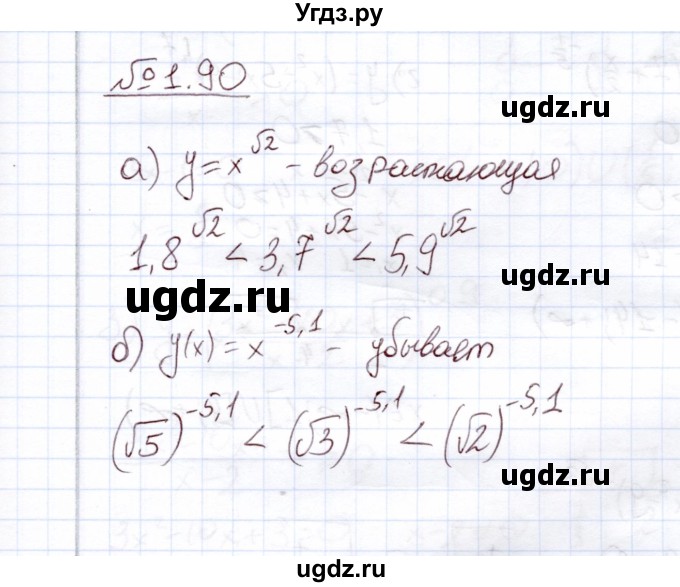 Угдз.ру
№1.90
ugdz.ru
а) y = x^√2 – возрастающая
1,8^√2 < 3,7^√2 < 5,9^√2
ugdz.ru
ugdz.ru
б) y(x) = x^-5,1 – убывает
(√5)^-5,1 < (√3)^-5,1 < (√2)^-5,1
ugdz.ru
ugdz.ru
ugdz.ru